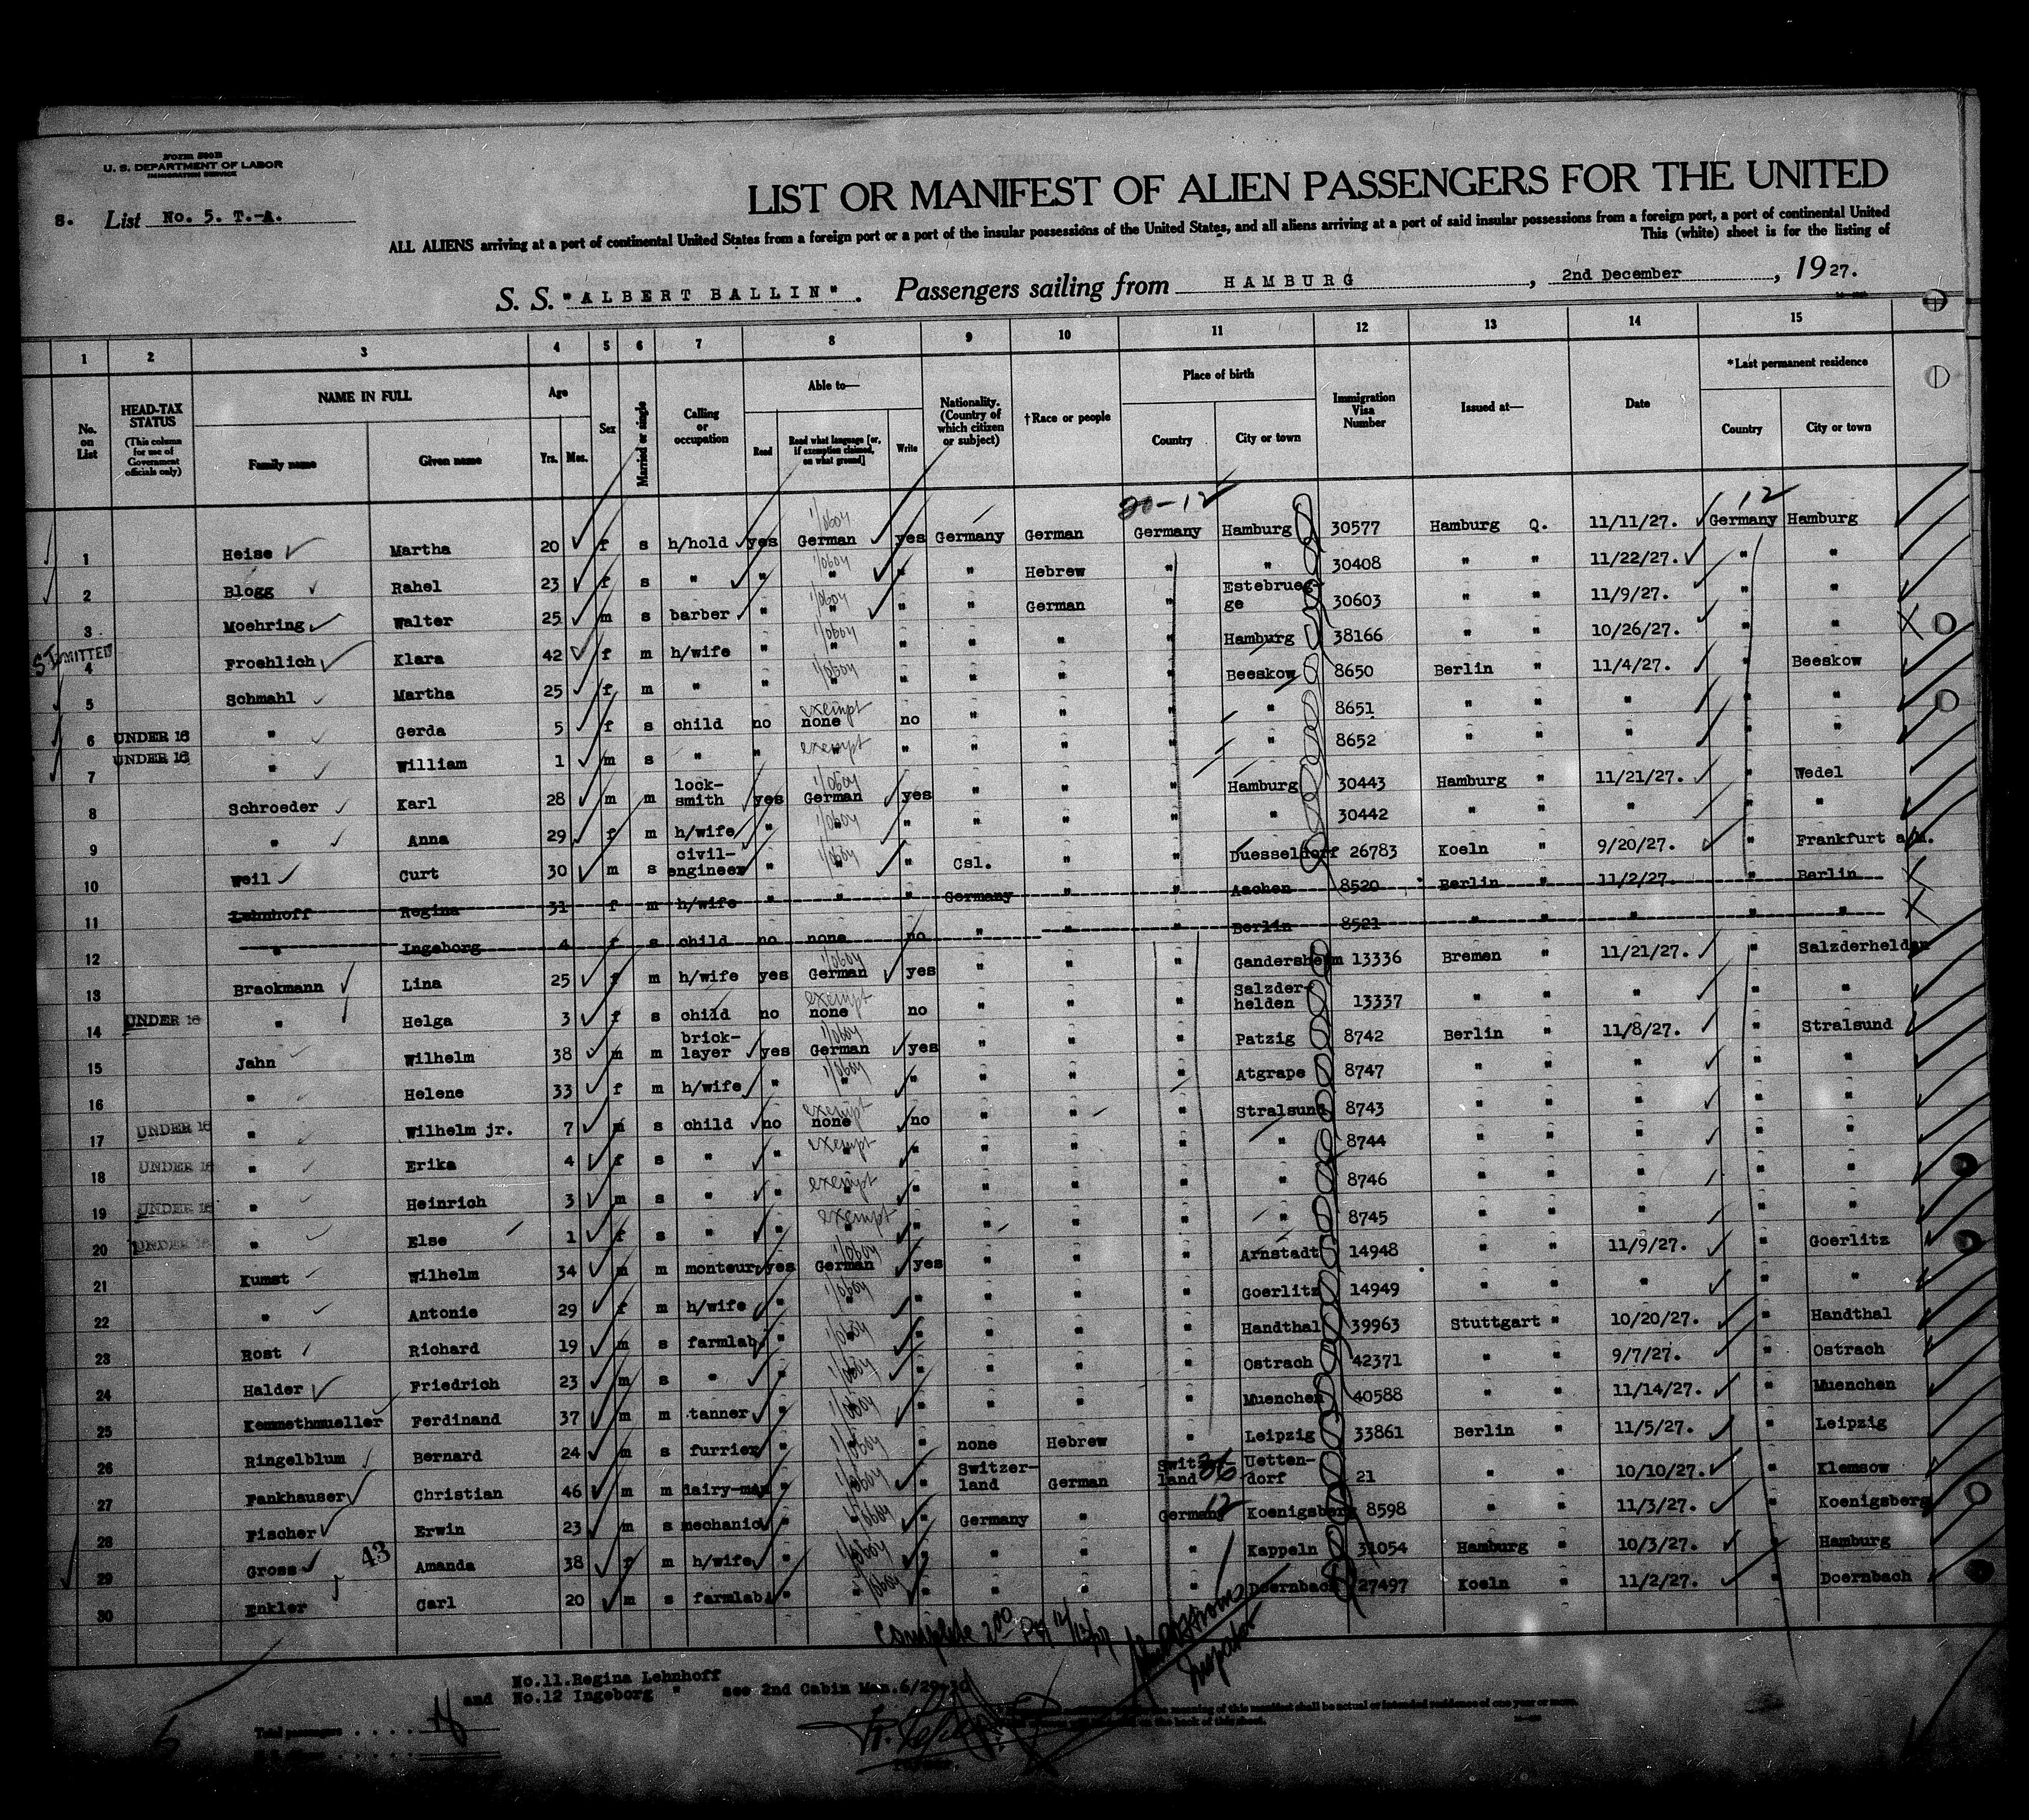 Form 500B
U. S. DEPARTMENT OF LABOR
IMMIGRATION SERVICE
S. List No. 5. T.-A.
LIST OR MANIFEST OF ALIEN PASSENGERS FOR THE UNITED
ALL ALIENS arriving at a port of continental United States from a foreign port or a port of the insular possessions of the United States, and all aliens arriving at a port of said insular possessions from a foreign port, a port of continental United
This (white) sheet is for the listing of
S. S. "ALBERT BALLIN". Passengers sailing from HAMBURG, 2nd December, 1927.
1 2 3 4 5 6 7 8 9 10 11 12 13 14 15
No. on List
HEAD-TAX STATUS (This column for use of Government officials only)
NAME IN FULL
Family name Given name
Age
Yrs. Mos.
Sex
Married or single
Calling or occupation
Able to—
Read Read what language [or, if exemption claimed, on what ground] Write
Nationality. (Country of which citizen or subject)
†Race or people
Place of birth
Country City or town
Immigration Visa Number
Issued at—
Date
*Last permanent residence
Country City or town
20-12 12
1 Heise Martha 20 f s h/hold yes German yes Germany German Germany Hamburg 30577 Hamburg Q. 11/11/27. Germany Hamburg
2 Blogg Rahel 23 f s " " " " " Hebrew " " 30408 " " 11/22/27. " "
3 Moehring Walter 25 m s barber " " " " German " Estebrueg-ge 30603 " " 11/9/27. " "
ADMITTED
4 Froehlich Klara 42 f m h/wife " " " " " " Hamburg 38166 " " 10/26/27. " "
5 Schmahl Martha 25 f m " " " " " " " Beeskow 8650 Berlin " 11/4/27. " Beeskow
6 UNDER 16 " Gerda 5 f s child no exempt none no " " " " 8651 " " " " "
7 UNDER 16 " William 1 m s " " exempt " " " " " " 8652 " " " " "
8 Schroeder Karl 28 m m lock-smith yes German yes " " " Hamburg 30443 Hamburg " 11/21/27. " Wedel
9 " Anna 29 f m h/wife " " " " " " " 30442 " " " " "
10 Weil Curt 30 m s civil-engineer " " " Csl. " " Duesseldorf 26783 Koeln " 9/20/27. " Frankfurt a/M.
11 Lehnhoff Regina 31 f m h/wife " " " Germany " " Aachen 8520 Berlin " 11/2/27. " Berlin
12 " Ingeborg 4 f s child no none no " " " Berlin 8521 " " " " "
13 Brackmann Lina 25 f m h/wife yes German yes " " " Gandersheim 13336 Bremen " 11/21/27. " Salzderhelden
14 UNDER 16 " Helga 3 f s child no exempt none no " " " Salzder-helden 13337 " " " " "
15 Jahn Wilhelm 38 m m brick-layer yes German yes " " " Patzig 8742 Berlin " 11/8/27. " Stralsund
16 " Helene 33 f m h/wife " " " " " " Atgrape 8747 " " " " "
17 UNDER 16 " Wilhelm jr. 7 m s child no exempt none no " " " Stralsund 8743 " " " " "
18 UNDER 16 " Erika 4 f s " " exempt " " " " " " 8744 " " " " "
19 UNDER 16 " Heinrich 3 m s " " exempt " " " " " " 8746 " " " " "
20 UNDER 16 " Else 1 f s " " exempt " " " " " " 8745 " " " " "
21 Kunst Wilhelm 34 m m monteur yes German yes " " " Arnstadt 14948 " " 11/9/27. " Goerlitz
22 " Antonie 29 f m h/wife " " " " " " Goerlitz 14949 " " " " "
23 Rost Richard 19 m s farmlab. " " " " " " Handthal 39963 Stuttgart " 10/20/27. " Handthal
24 Halder Friedrich 23 m s " " " " " " " Ostrach 42371 " " 9/7/27. " Ostrach
25 Kemmethmueller Ferdinand 37 m m tanner " " " " " " Muenchen 40588 " " 11/14/27. " Muenchen
26 Ringelblum Bernard 24 m s furrier " " " none Hebrew " Leipzig 33861 Berlin " 11/5/27. " Leipzig
27 Fankhauser Christian 46 m m dairy-man " " " Switzer-land German Switz-land 36 Uetten-dorf 21 " " 10/10/27. " Klemsow
28 Fischer Erwin 23 m s mechanic " " " Germany " Germany 12 Koenigsberg 8598 " " 11/3/27. " Koenigsberg
29 Gross 43 Amanda 38 f m h/wife " " " " " " Kappeln 31054 Hamburg " 10/3/27. " Hamburg
30 Enkler Carl 20 m s farmlab. " " " " " " Doernbach 27497 Koeln " 11/2/27. " Doernbach
Complete
Inspector
No.11.Regina Lehnhoff
and No.12 Ingeborg " see 2nd Cabin Man.6/29-30
Total passengers